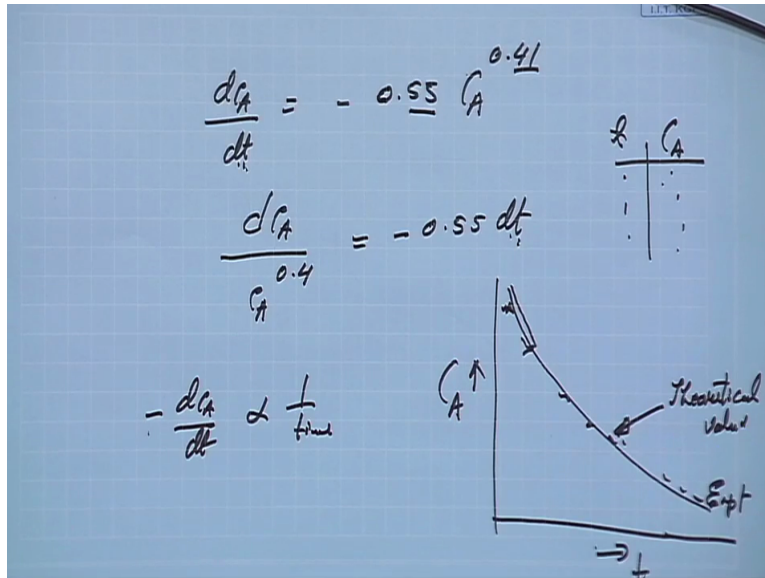 I.I.T. KG
dC_A/dt = - 0.55 C_A^0.41
t | C_A
dC_A/C_A^0.4 = - 0.55 dt
- dC_A/dt ∝ 1/time
C_A ↑
Theoretical
value
Expt
→ t